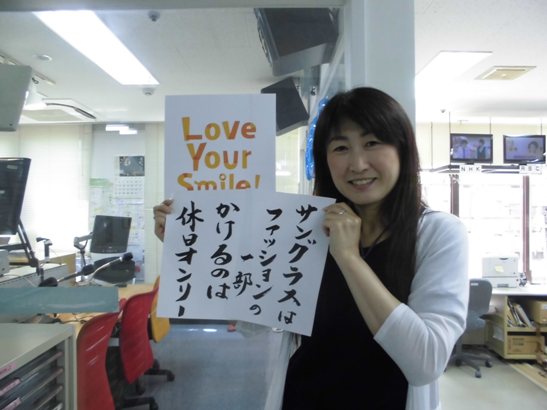 Love
Your
Smile!
サングラスは
ファッションの
一部
かけるのは
休日オンリー